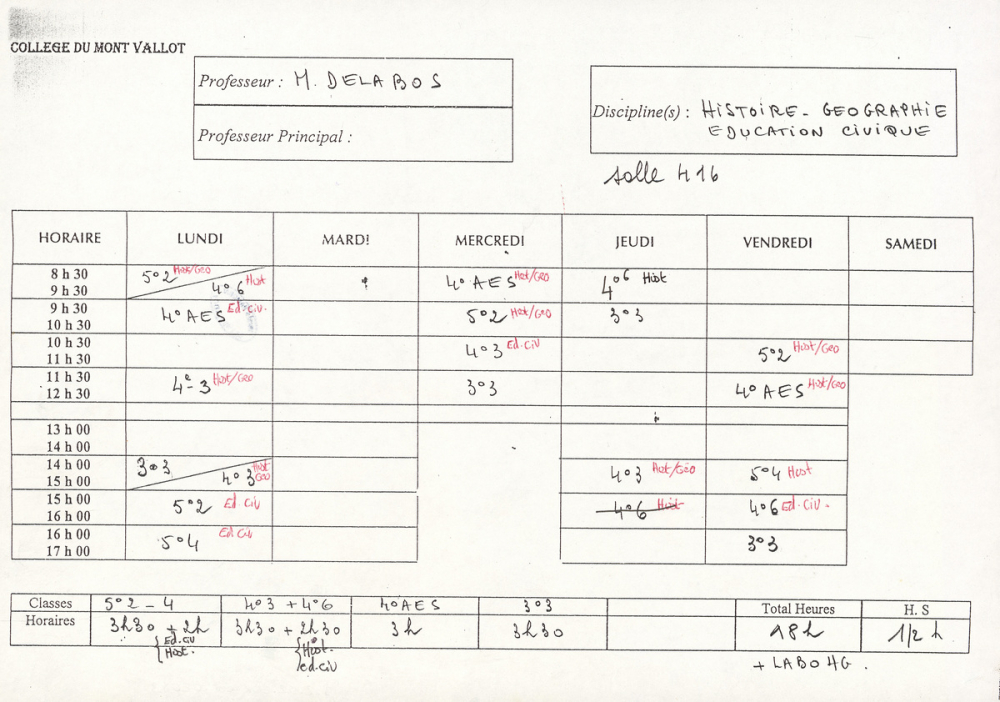 COLLEGE DU MONT VALLOT
Professeur : M. DELABOS
Professeur Principal :
Discipline(s) : HISTOIRE - GEOGRAPHIE
EDUCATION CIVIQUE
salle 416
HORAIRE LUNDI MARDI MERCREDI JEUDI VENDREDI SAMEDI
8 h 30 5°2 Hist/Géo 4°AES Hist/Géo 4°6 Hist
9 h 30 4°6 Hist
9 h 30 4°AES Ed. civ. 5°2 Hist/Géo 3°3
10 h 30
10 h 30 4°3 Ed. civ 5°2 Hist/Géo
11 h 30
11 h 30 4°3 Hist/Géo 3°3 4°AES Hist/Géo
12 h 30
13 h 00
14 h 00
14 h 00 3°3 4°3 Hist/Géo 5°4 Hist
15 h 00 4°3 Hist Géo
15 h 00 5°2 Ed. civ 4°6 Hist 4°6 Ed. civ.
16 h 00
16 h 00 5°4 Ed civ 3°3
17 h 00
Classes 5°2 - 4 4°3 + 4°6 4°AES 3°3 Total Heures H. S
Horaires 3h30 + 2h 3h30 + 2h30 3h 3h30 18h 1/2 h
{Ed.civ {Hist
Hist. ed.civ
+ LABO HG.